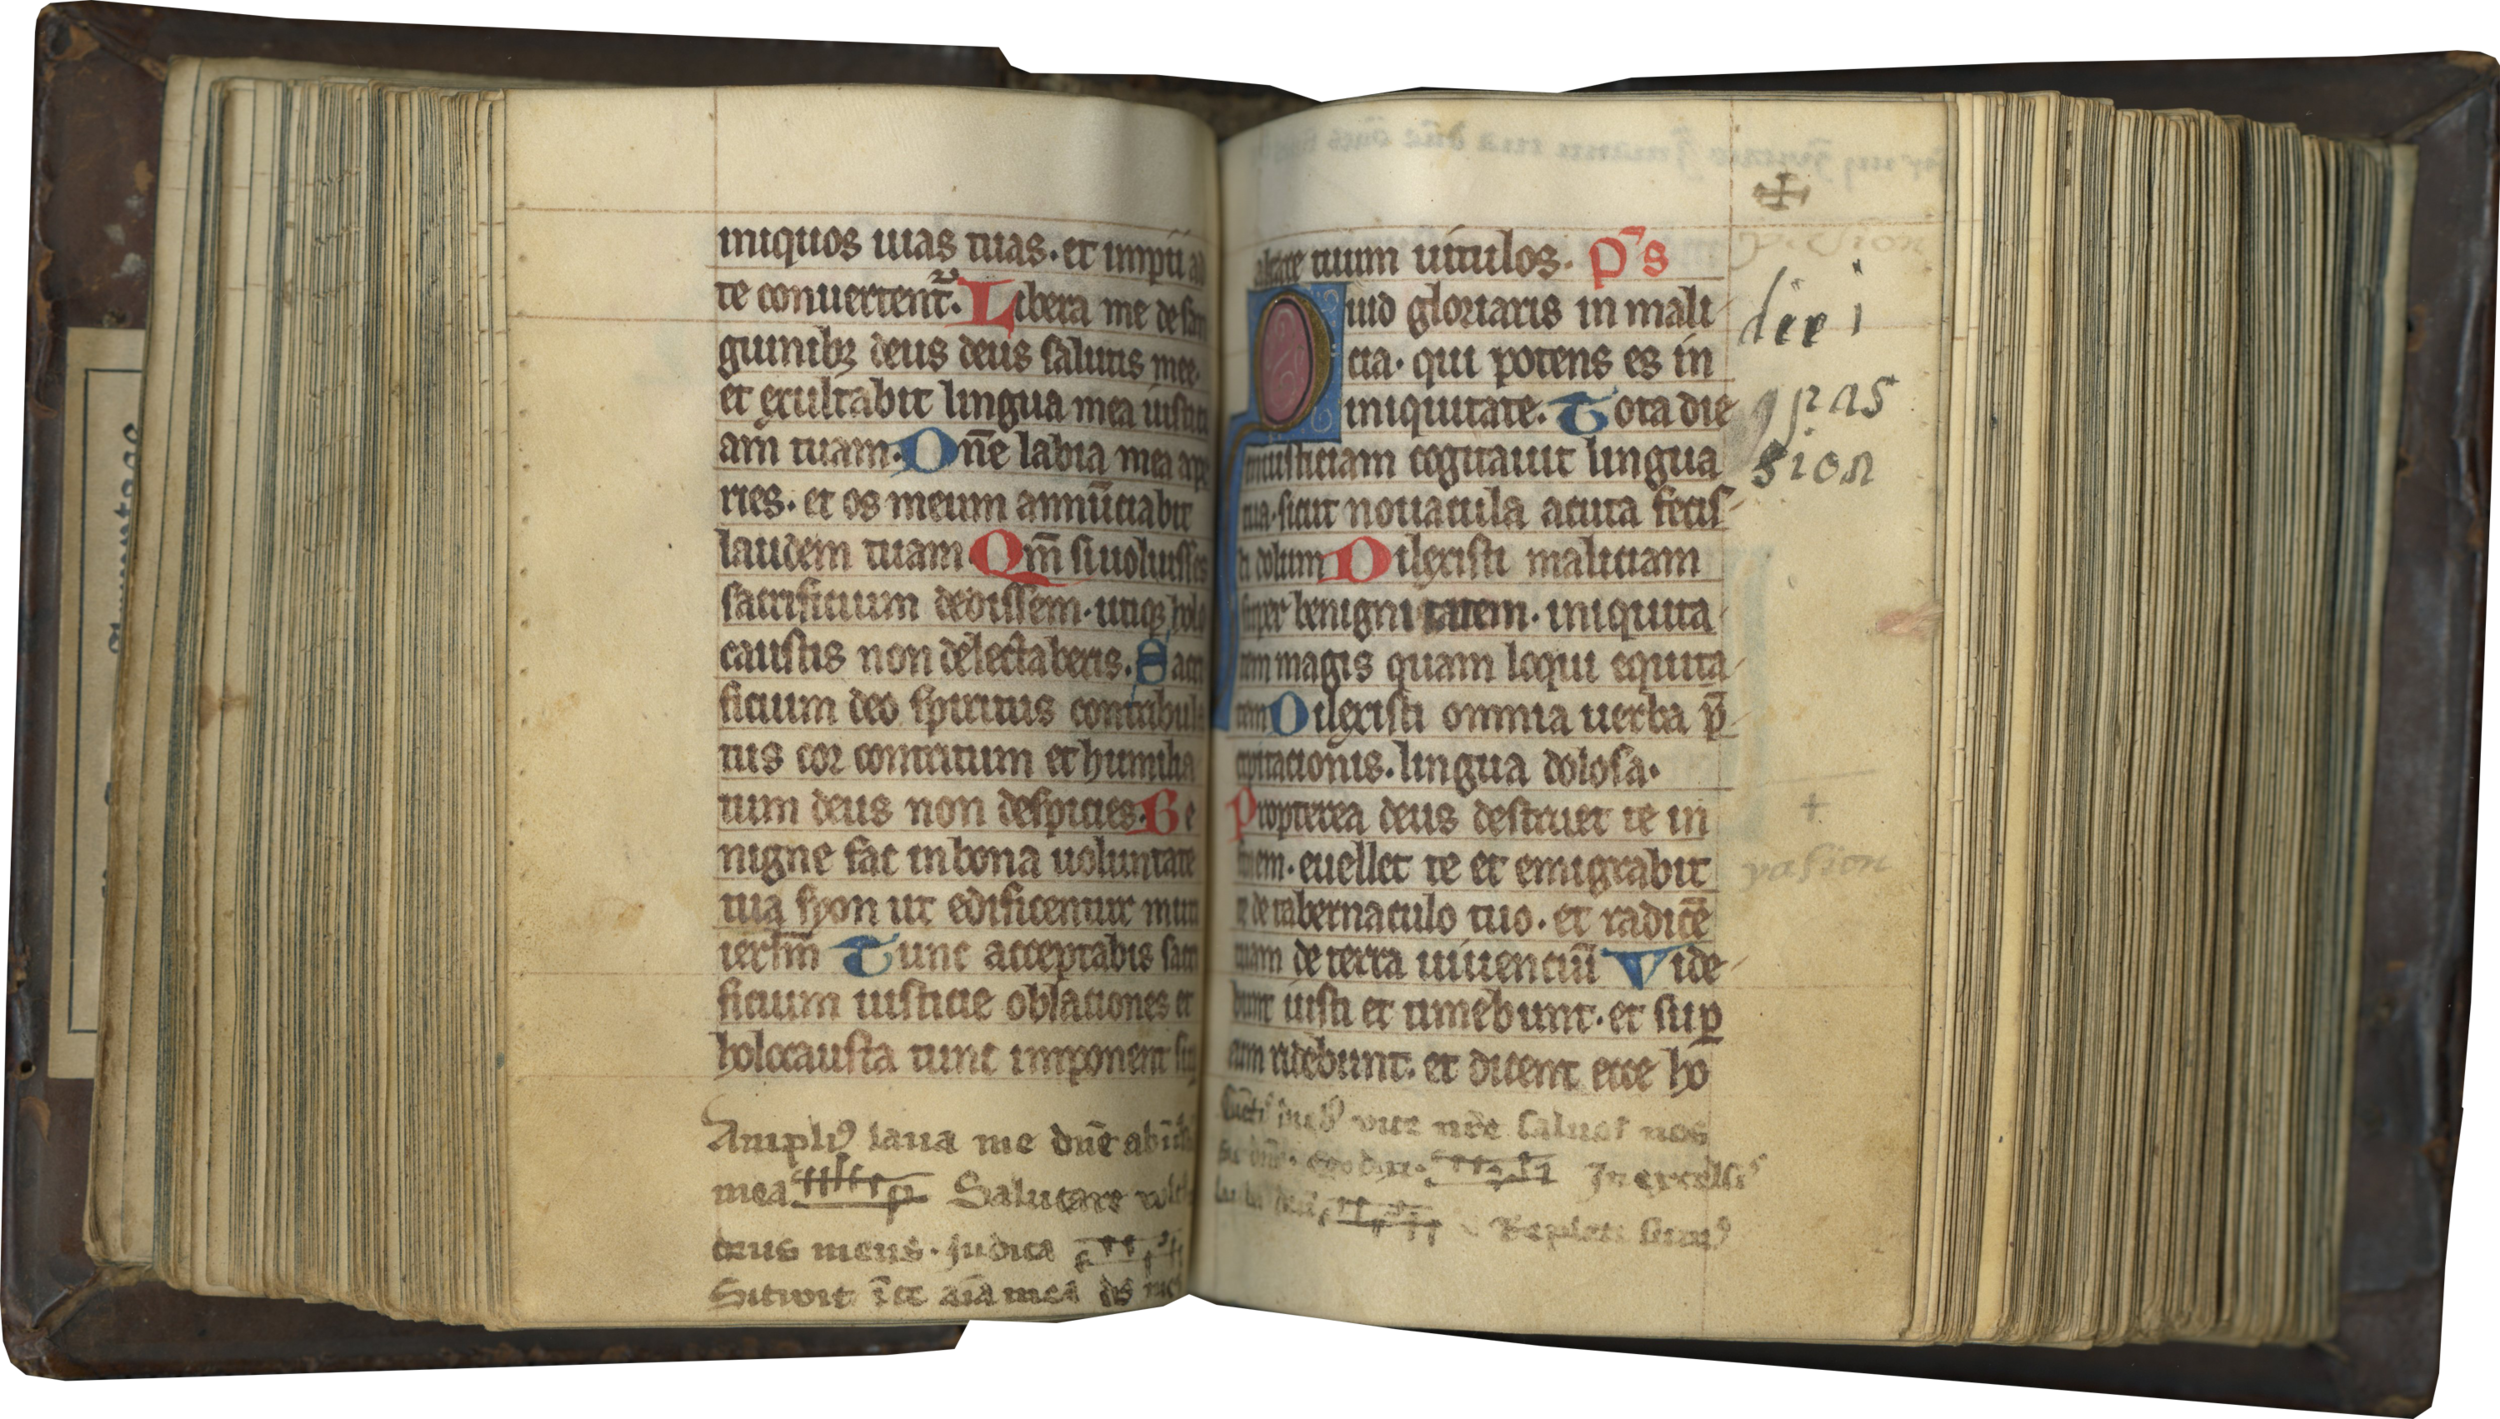 iniquos uias tuas. et impii ad
te conuertent̃. Libera me de san
guinibꝫ deus deus salutis mee.
et exultabit lingua mea iustici
am tuam. Dñe labia mea ape
ries. et os meum annũciabit
laudem tuam Qm̃ si uoluisses
sacrificium dedissem. utiqꝫ holo
caustis non delectaberis. Sacri
ficium deo spiritus contribula
tus cor contritum et humilia
tum deus non despicies. Be
nigne fac in bona uoluntate
tua syon ut edificentur muri
ierlm̃ Tunc acceptabis sacri
ficium iusticie oblationes et
holocausta tunc imponent sup
Ampliꝰ laua me dñe ab
mea Salutare
deus meus. Judica
Sitiuit aĩa mea ds
altare tuum uitulos. P̃s
Quid gloriaris in mali
cia. qui potens es in
iniquitate. Tota die
iniusticiam cogitauit lingua
tua. sicut nouacula acuta fecis
ti dolum Dilexisti maliciam
super benignitatem. iniquita
tem magis quam loqui equita
tem Dilexisti omnia uerba p̃
cipitacionis. lingua dolosa.
Propterea deus destruet te in
finem. euellet te et emigrabit
te de tabernaculo tuo. et radicẽ
tuam de terra uiuenciũ Vide
bunt iusti et timebunt. et suꝑ
eum ridebunt. et dicent ecce ho
saluos nos
In excelsis
Repleti sumꝰ
pas
sion
pasion